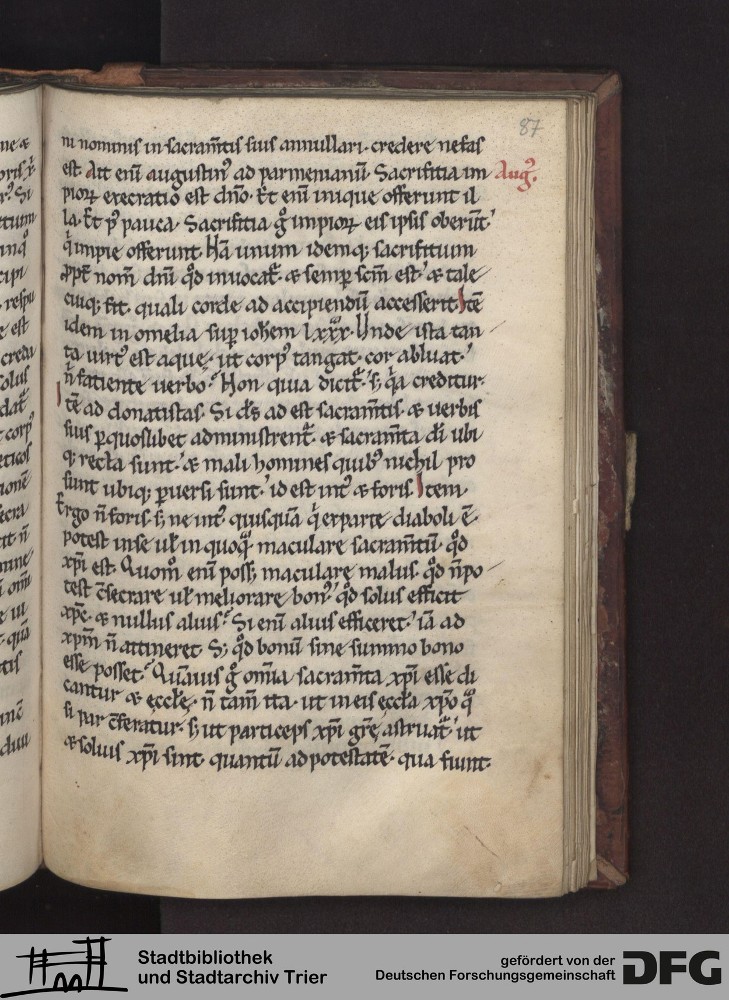 87
ni nominis in sacram̅tis suis annullari. credere nefas
est Ait eni̅ augustin᷒ ad parmenianu̅. Sacrifitia im
Aug᷒.
pioꝝ execratio est dn̅o. Et eni̅ inique offerunt il
la. Et p᷒ pauca. Sacrifitia g̊ impioꝝ eis ipsis oberu̅t.
q̇ impie offerunt. Na̅ unum idemq; sacrifitium
ꝓpt̅ nom̅ dn̅i qd̅ inuocat̅. & semp̲ sc̅m est. & tale
cuiq; fit. quali corde ad accipiendu̅ accesserit. Ite̅
idem in omelia sup̲ ioh̅em lxxx. Unde ista tan
ta uirt᷒ est aque. ut corp᷒ tangat. cor abluat.
n̅ fatiente uerbo. Non quia dicit̅. s; q̅a creditur.
Ite̅ ad donatistas. Si d̅s ad est sacram̅tis. & uerbis
suis ꝑ quoslibet administrent̅. & sacram̅ta di̅ ubi
q; recta sunt. & mali homines quib᷒ nichil pro
sunt ubiq; ꝑuersi sunt. id est int᷒ & foris. Item.
Ergo n̅ foris. s; ne int᷒ quisqua̅ q̇ ex parte diaboli e̅.
potest in se uł in quoq̅ maculare sacram̅tu̅. qd̅
xp̅i est. Quom̅ eni̅ poss; maculare malus. qd̅ n̅ po
test c̅secrare uł meliorare bon᷒. qd̅ solus efficit
xp̅c. & nullus alius. Si eni̅ alius efficeret. ia̅ ad
xp̅m n̅ attineret. S; qd̅ bonu̅ sine summo bono
esse posset. Qua̅uis g̊ om̅ia sacram̅ta xp̅i esse di
cantur & eccłe. n̅ tam̅ ita. ut in eis eccła xp̅o q̅
si par c̅feratur. s; ut particeps xp̅i gr̅e astruat̅. ut
& soluis xp̅i sint. quantu̅ ad potestate̅. qua fiunt.
Stadtbibliothek
und Stadtarchiv Trier
gefördert von der
Deutschen Forschungsgemeinschaft
DFG